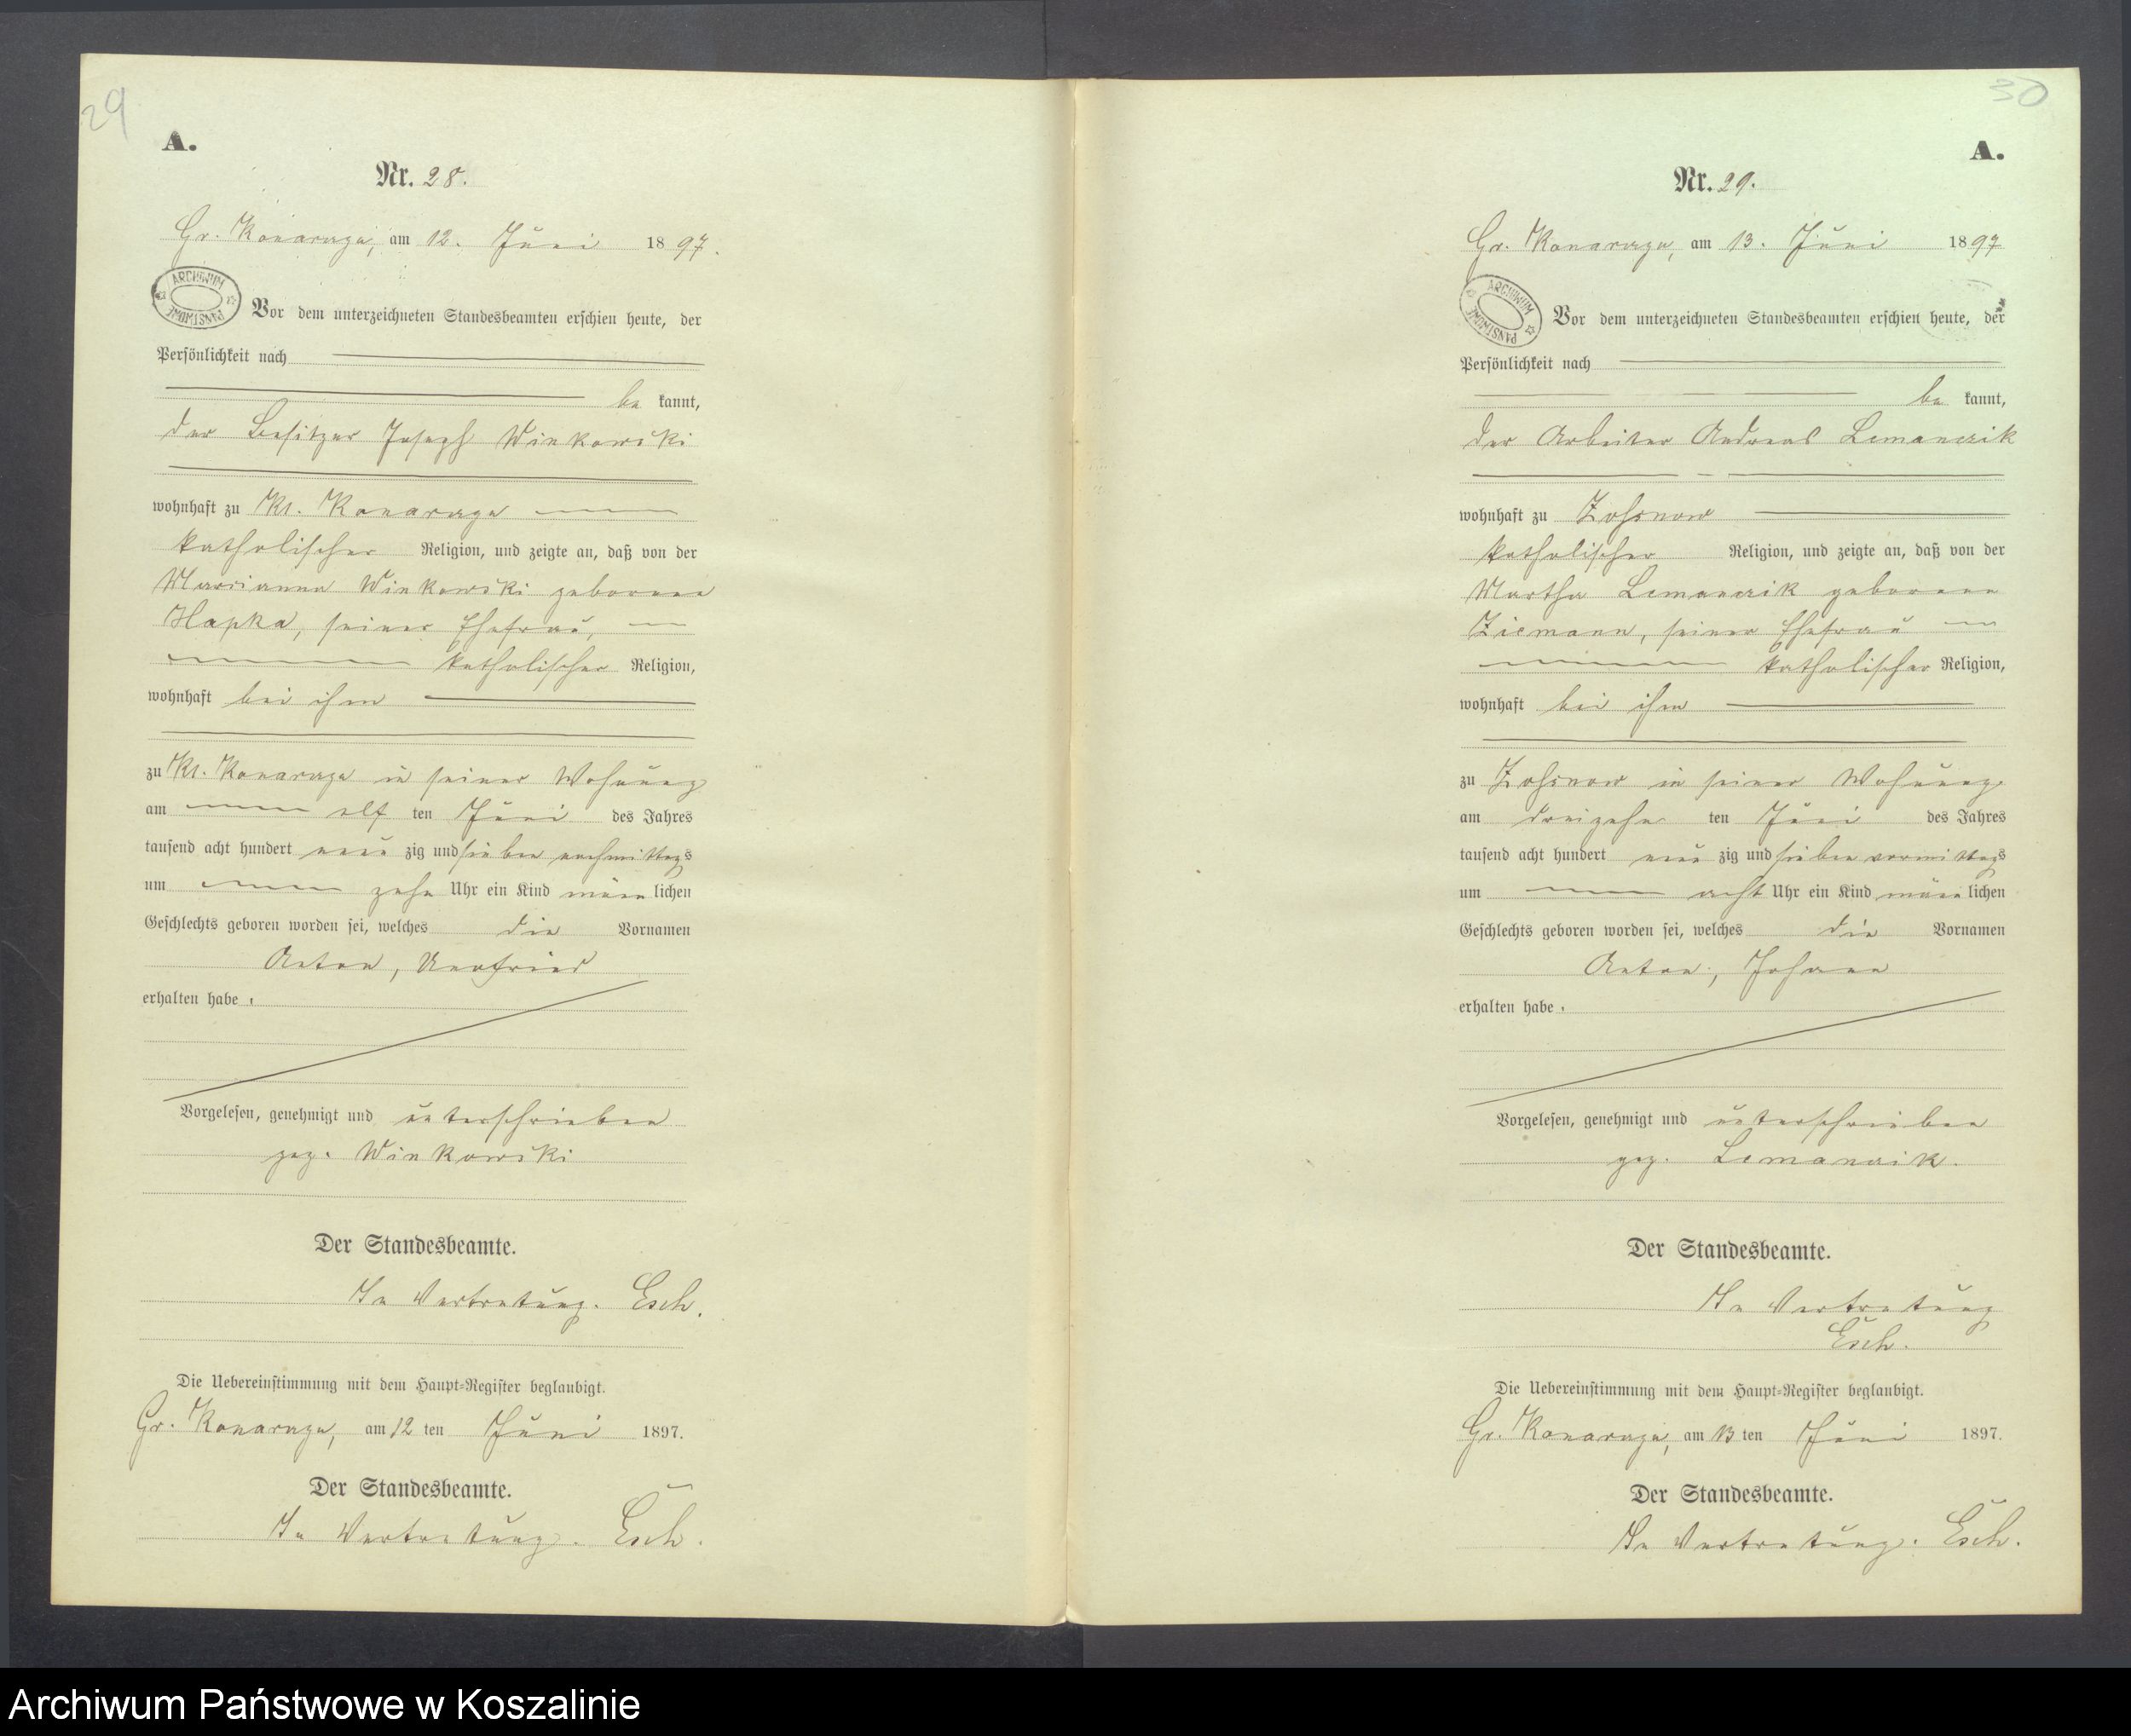 29
A.
Nr. 28.
Gr. Konarczyn, am 12. Juni 1897.
ARCHIWUM PAŃSTWOWE
Vor dem unterzeichneten Standesbeamten erschien heute, der
Persönlichkeit nach
be kannt,
der Besitzer Joseph Winkowski
wohnhaft zu Kl. Konarczyn
katholischer Religion, und zeigte an, daß von der
Marianna Winkowski geborenen
Hapka, seiner Ehefrau,
katholischer Religion,
wohnhaft bei ihm
zu Kl. Konarczyn in seiner Wohnung
am elf ten Juni des Jahres
tausend acht hundert neun zig und sieben nachmittags
um zehn Uhr ein Kind männ lichen
Geschlechts geboren worden sei, welches die Vornamen
Anton,
erhalten habe.
Vorgelesen, genehmigt und unterschrieben
gez. Winkowski
Der Standesbeamte.
In Vertretung. Esch.
Die Uebereinstimmung mit dem Haupt-Register beglaubigt.
Gr. Konarczyn, am 12 ten Juni 1897.
Der Standesbeamte.
In Vertretung. Esch.
30
A.
Nr. 29.
Gr. Konarczyn, am 13. Juni 1897
ARCHIWUM PAŃSTWOWE
Vor dem unterzeichneten Standesbeamten erschien heute, der
Persönlichkeit nach
be kannt,
der Arbeiter Andreas Lemanczik
wohnhaft zu Zohsnow
katholischer Religion, und zeigte an, daß von der
Martha Lemanczik geborenen
Ziemann, seiner Ehefrau
katholischer Religion,
wohnhaft bei ihm
zu Zohsnow in seiner Wohnung
am dreizehn ten Juni des Jahres
tausend acht hundert neun zig und sieben vormittags
um acht Uhr ein Kind männ lichen
Geschlechts geboren worden sei, welches die Vornamen
Anton, Johann
erhalten habe.
Vorgelesen, genehmigt und unterschrieben
gez. Lemanczik.
Der Standesbeamte.
In Vertretung
Esch.
Die Uebereinstimmung mit dem Haupt-Register beglaubigt.
Gr. Konarczyn, am 13 ten Juni 1897.
Der Standesbeamte.
In Vertretung. Esch.
Archiwum Państwowe w Koszalinie